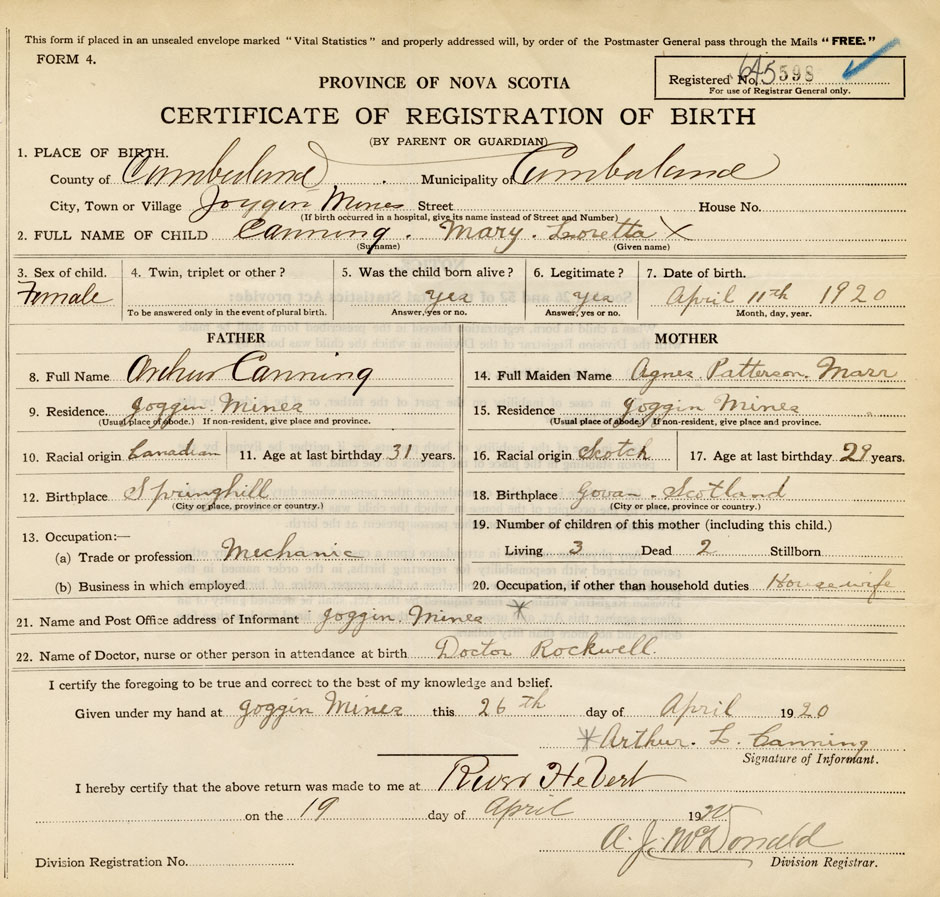 This form if placed in an unsealed envelope marked "Vital Statistics" and properly addressed will, by order of the Postmaster General pass through the Mails "FREE."
FORM 4.
PROVINCE OF NOVA SCOTIA
Registered No. 645598
For use of Registrar General only.
CERTIFICATE OF REGISTRATION OF BIRTH
(BY PARENT OR GUARDIAN)
1. PLACE OF BIRTH.
County of Cumberland Municipality of Cumberland
City, Town or Village Joggin Mines Street House No.
(If birth occurred in a hospital, give its name instead of Street and Number)
2. FULL NAME OF CHILD Canning. Mary. Loretta X
(Surname) (Given name)
3. Sex of child. 4. Twin, triplet or other? 5. Was the child born alive? 6. Legitimate? 7. Date of birth.
Female yes yes April 11th 1920
To be answered only in the event of plural birth. Answer, yes or no. Answer, yes or no. Month, day, year.
FATHER
8. Full Name Arthur Canning
9. Residence. Joggin Mines
(Usual place of abode.) If non-resident, give place and province.
10. Racial origin Canadian 11. Age at last birthday 31 years.
12. Birthplace Springhill
(City or place, province or country.)
13. Occupation:—
(a) Trade or profession Mechanic
(b) Business in which employed
MOTHER
14. Full Maiden Name Agnes Patterson. Marr
15. Residence Joggin Mines
(Usual place of abode.) If non-resident, give place and province.
16. Racial origin Scotch 17. Age at last birthday 29 years.
18. Birthplace Govan. Scotland
(City or place, province or country.)
19. Number of children of this mother (including this child.)
Living 3 Dead 2 Stillborn
20. Occupation, if other than household duties Housewife
21. Name and Post Office address of Informant Joggin Mines *
22. Name of Doctor, nurse or other person in attendance at birth Doctor Rockwell.
I certify the foregoing to be true and correct to the best of my knowledge and belief.
Given under my hand at Joggin Mines this 26th day of April 1920
*Arthur. L. Canning
Signature of Informant.
I hereby certify that the above return was made to me at River Hebert
on the 19 day of April 1920
A. J. McDonald
Division Registration No. Division Registrar.